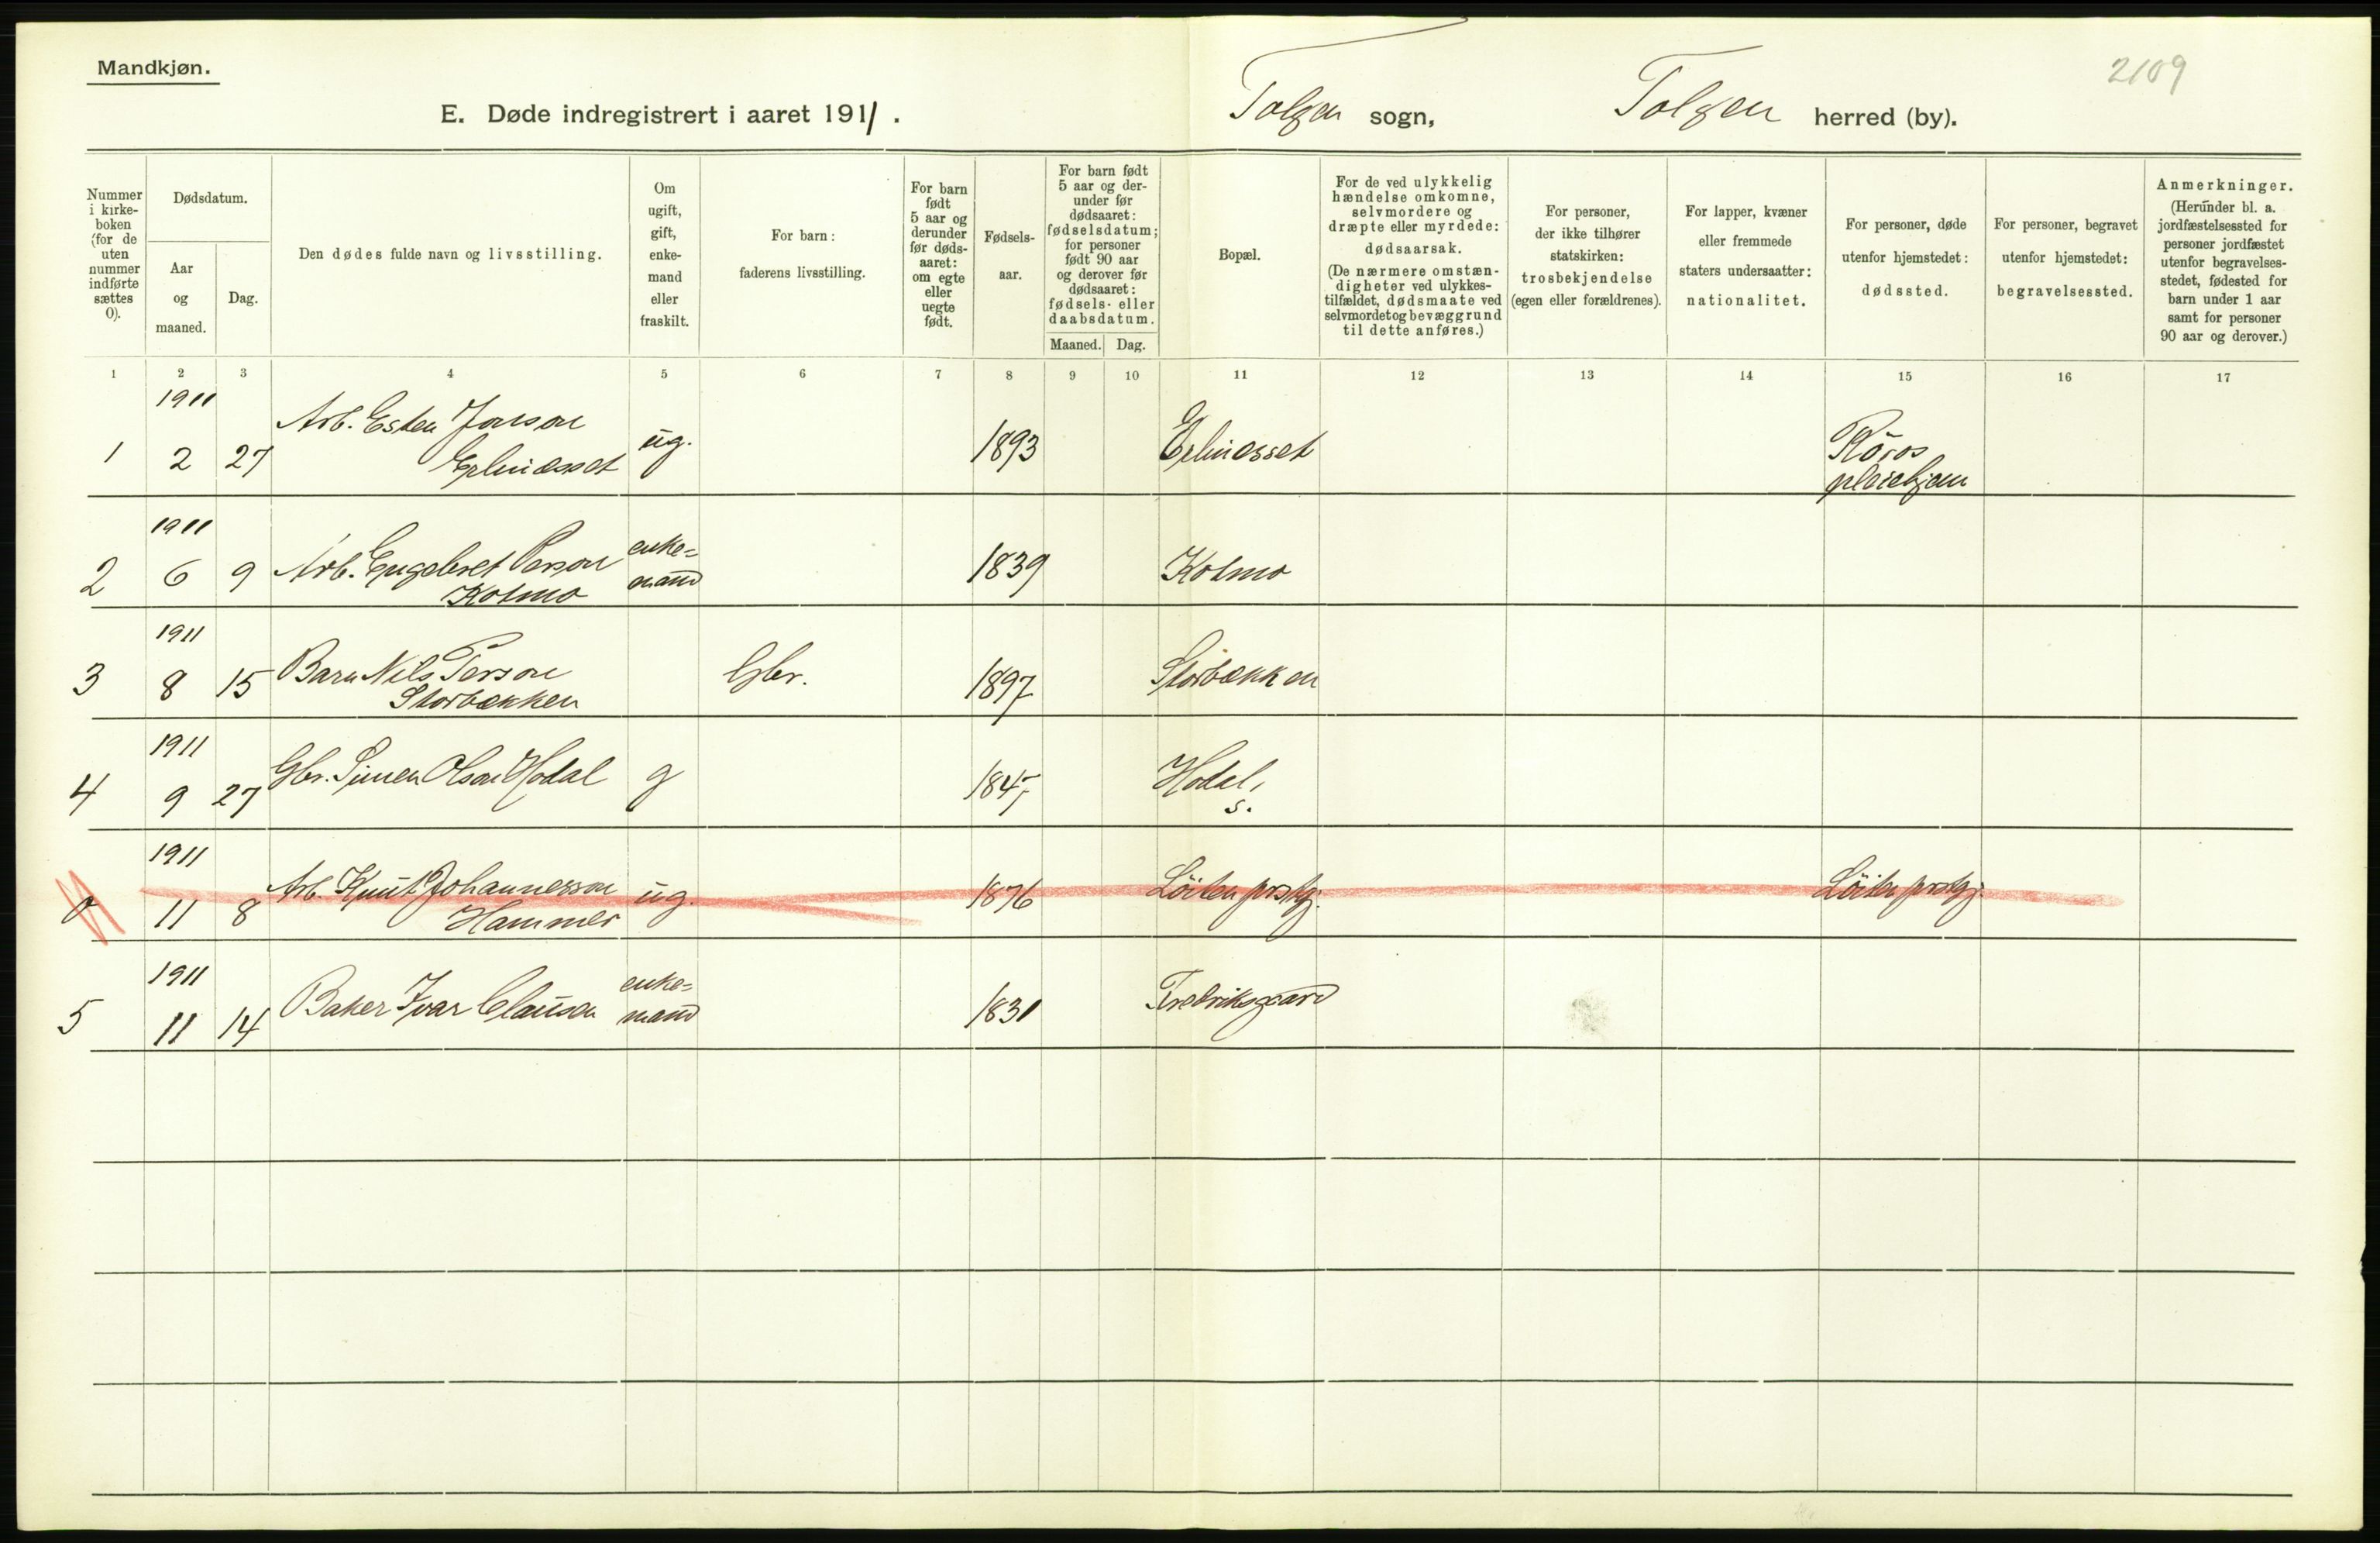 Mandkjøn.
2109
E. Døde indregistrert i aaret 1911.
Tolgen sogn, Tolgen herred (by).
Nummer i kirke-boken (for de uten nummer indførte sættes 0).
Dødsdatum.
Aar og maaned.
Dag.
Den dødes fulde navn og livsstilling.
Om ugift, gift, enke-mand eller fraskilt.
For barn: faderens livsstilling.
For barn født 5 aar og derunder før døds-aaret: om egte eller uegte født.
Fødsels-aar.
For barn født 5 aar og der-under før dødsaaret: fødselsdatum; for personer født 90 aar og derover før dødsaaret: fødsels- eller daabsdatum.
Maaned. Dag.
Bopæl.
For de ved ulykkelig hændelse omkomne, selvmordere og dræpte eller myrdede: dødsaarsak. (De nærmere omstæn-digheter ved ulykkes-tilfældet, dødsmaate ved selvmordet og bevæggrund til dette anføres.)
For personer, der ikke tilhører statskirken: trosbekjendelse (egen eller forældrenes).
For lapper, kvæner eller fremmede staters undersaatter: nationalitet.
For personer, døde utenfor hjemstedet: dødssted.
For personer, begravet utenfor hjemstedet: begravelsessted.
Anmerkninger. (Herunder bl. a. jordfæstelsessted for personer jordfæstet utenfor begravelses-stedet, fødested for barn under 1 aar samt for personer 90 aar og derover.)
1 2 3 4 5 6 7 8 9 10 11 12 13 14 15 16 17
1911
1 2 27 Arb. Esten Jonson ug. 1893 Røros
pleiehjem
1911
2 6 9 Arb. Engebret Person Kotmo enke=mand 1839 Kotmo
1911
3 8 15 Barn Nils Person Storbækken Gbr. 1897 Storbækken
1911
4 9 27 Gbr. Simen Olson Hodal g 1845 Hodal, s.
1911
0 11 8 Arb. Knut Johannesson Hammer ug. 1876 Löiten prstgj. Löiten prstgj.
1911
5 11 14 Baker Ivar Clausen enke=mand 1831 Fredriksgaard